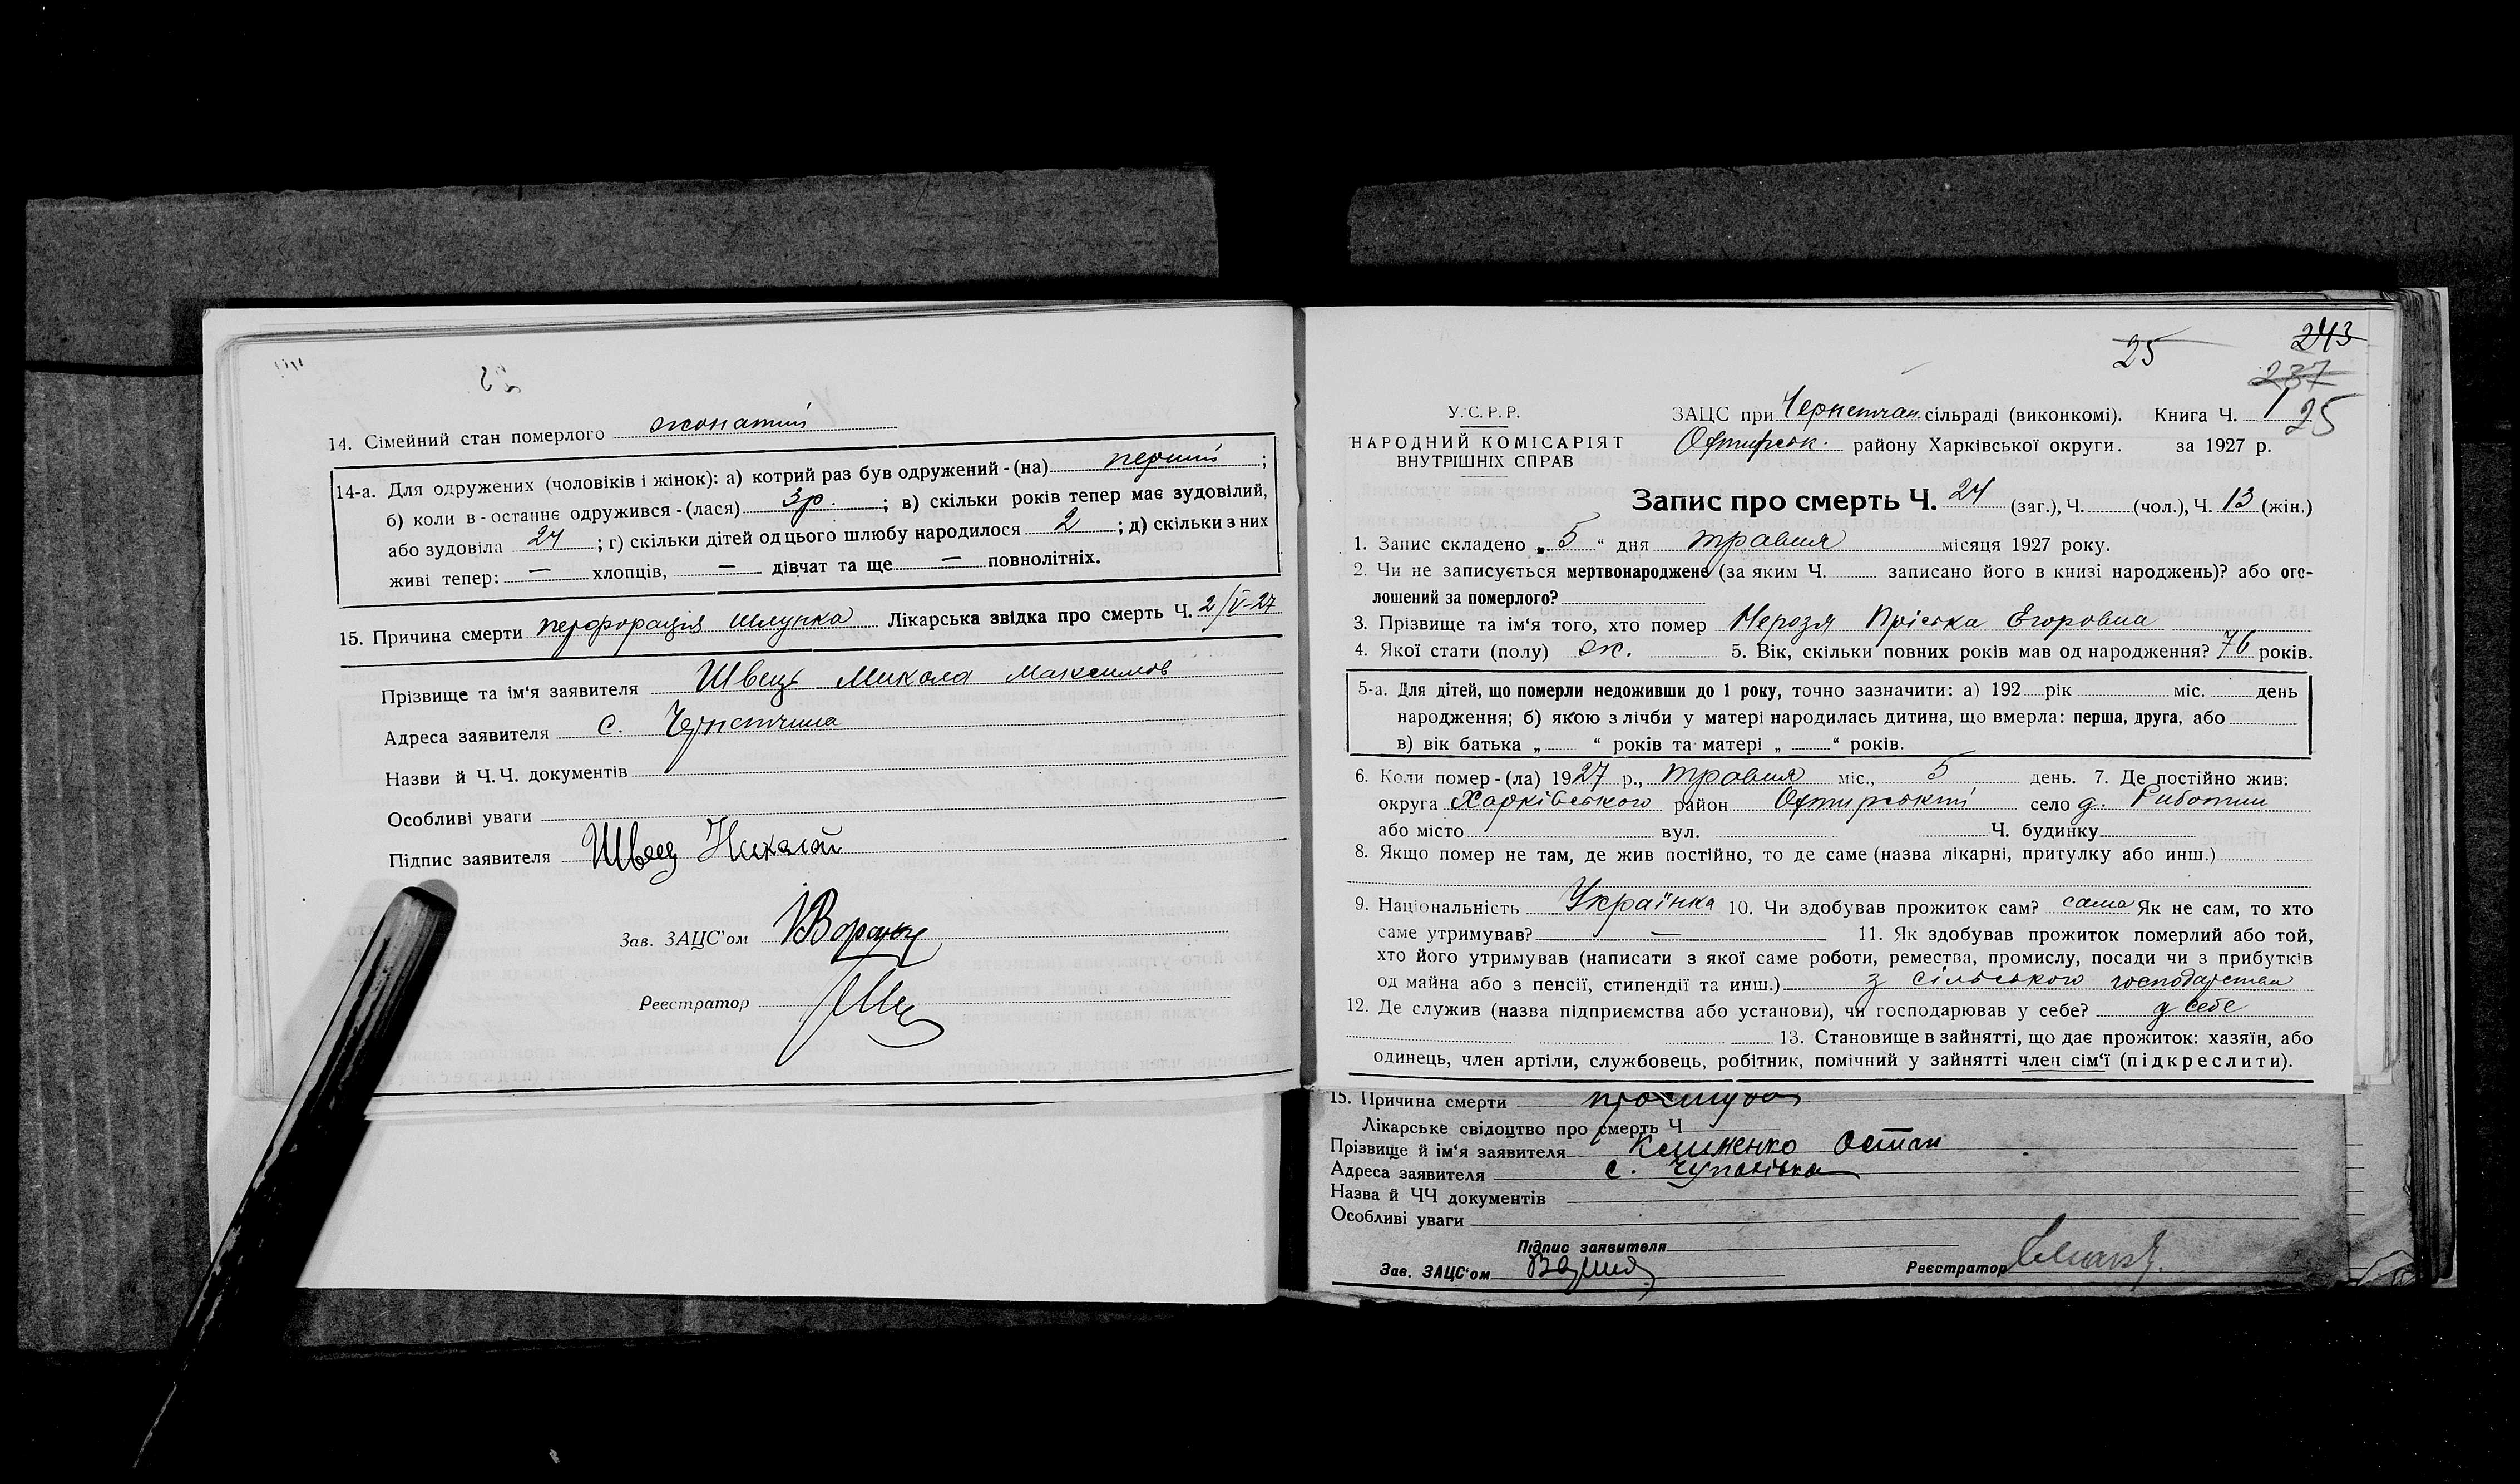 14. Сімейний стан померлого жонатий
14-а. Для одружених (чоловіків і жінок): а) котрий раз був одружений-(на) перший ;
б) коли в-останнє одружився-(лася) 3р. ; в) скільки років тепер має зудовілий,
або зудовіла 24 ; г) скільки дітей од цього шлюбу народилося 2 ; д) скільки з них
живі тепер: — хлопців, — дівчат та ще — повнолітніх.
15. Причина смерти перфорація шлунка Лікарська звідка про смерть Ч. 2/V-27
Прізвище та ім'я заявителя Швець Микола Максимов
Адреса заявителя с. Чернетчина
Назви й Ч.Ч. документів
Особливі уваги
Підпис заявителя Швец Николай
Зав. ЗАЦС'ом
Реєстратор
25 243
237
У.С.Р.Р. ЗАЦС при Чернетчан. сільраді (виконкомі). Книга Ч. 1 25
НАРОДНИЙ КОМІСАРІЯТ Охтирськ. району Харківської округи. за 1927 р.
ВНУТРІШНІХ СПРАВ
Запис про смерть Ч. 24 (заг.), Ч. (чол.), Ч. 13 (жін.)
1. Запис складено „ 5 “ дня травня місяця 1927 року.
2. Чи не записується мертвонароджене (за яким Ч. записано його в книзі народжень)? або ого-
лошений за померлого?
3. Прізвище та ім'я того, хто помер Нерозя Пріська Егоровна
4. Якої стати (полу) ж. 5. Вік, скільки повних років мав од народження? 76 років.
5-а. Для дітей, що померли недоживши до 1 року, точно зазначити: а) 192 рік міс. день
народження; б) якою з лічби у матері народилась дитина, що вмерла: перша, друга, або
в) вік батька „ “ років та матері „ “ років.
6. Коли помер-(ла) 1927 р., травня міс., 5 день. 7. Де постійно жив:
округа Харківського район Охтирський село
або місто вул. Ч. будинку
8. Якщо помер не там, де жив постійно, то де саме (назва лікарні, притулку або инш.)
9. Національність Українка 10. Чи здобував прожиток сам? сама Як не сам, то хто
саме утримував? — 11. Як здобував прожиток померлий або той,
хто його утримував (написати з якої саме роботи, ремества, промислу, посади чи з прибутків
од майна або з пенсії, стипендії та инш.) з сільського господарства
12. Де служив (назва підприємства або установи), чи господарював у себе? у себе
13. Становище в зайнятті, що дає прожиток: хазяїн, або
одинець, член артіли, службовець, робітник, помічний у зайнятті член сім'ї (підкреслити).
15. Причина смерти простуда
Лікарське свідоцтво про смерть Ч
Прізвище й ім'я заявителя Клименко Остап
Адреса заявителя с. Чупахівка
Назва й ЧЧ документів
Особливі уваги
Підпис заявителя
Зав. ЗАЦС'ом Реєстратор